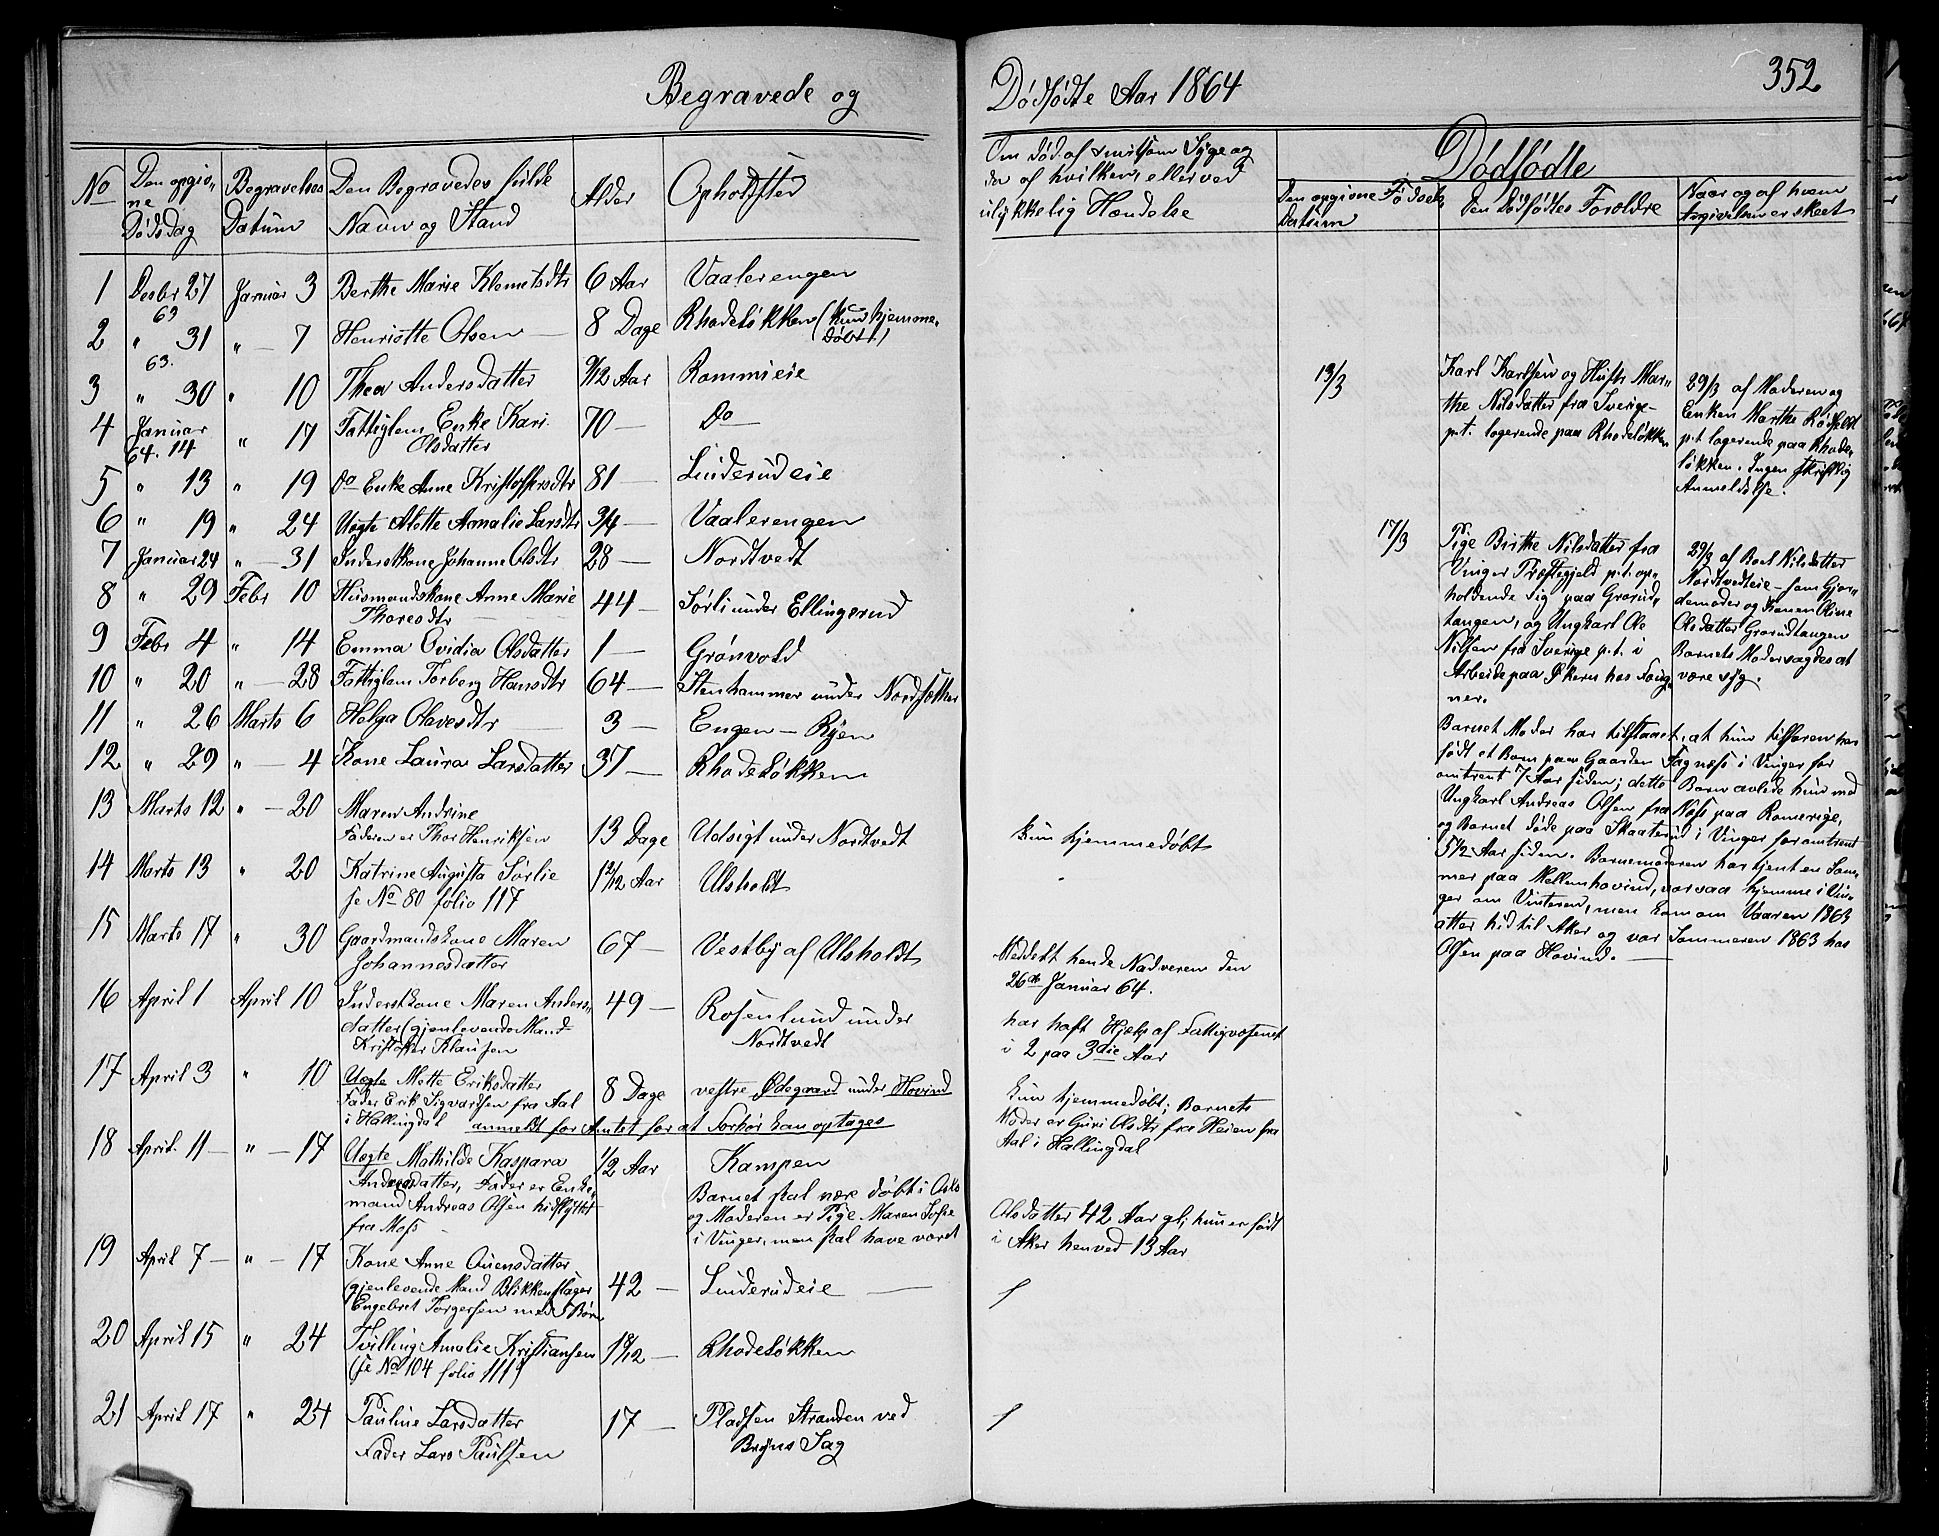 Begravede og
Dødfødte Aar 1864
352
No
Den opgiv-
ne
Dødsdag
Begravelses
Datum
Den Begravedes fulde
Navn og Stand
Alder
Opholdssted
1 Desbr 27 Januar 3 Berthe Marie Klemetsdtr 6 Aar Vaalerengen
63
2 " 31 " — 7 Henriette Olsen — 8 Dage Rhodeløkken (kun hjemme-
døbt)
63.
3 " 30 " 10 Thea Andersdatter 9/12 Aar Rommieie
4 Januar " 17 Fattiglem Enke Kari 70 — Do
64. 14 Olsdatter
5 " 13 " 19 do Enke Anne Kristoffersdtr 81 — Linderudeie
6 " 19 " 24 Uægte Alette Amalie Larsdtr 3/4 — Vaalerengen
7 Januar 24 " — 31 Inderstkone Johanne Olsdtr 28 — Nordtvedt
8 " 29 Febr 10 Husmandskone Anne Marie 44 — Sørli under Ellingsrud
Thoresdtr
9 Febr 4 " 14 Emma Ovidia Olsdatter 1 — Grønvold
10 " 20 " — 28 Fattiglem Torberg Hansdtr 64 — Stenhammer under Nordsætter
11 " 26 Marts 6 Helga Olavesdtr 3 — Engen — Ryen
12 " 29 " — 4 Kone Laura Larsdatter 37 — Rhodeløkken
13 Marts 12 " — 20 Maren Andrine
Faderen er Thor Henriksen 13 Dage Udsigt under Nordtvedt
14 Marts 13 " 20 Katrine Augusta Sørlie 1 2/12 Aar Ulsholt
se No 80 folio 117
15 Marts 17 " 30 Gaardmandskone Maren 67 — Vestby af Ulsholdt
Johannesdatter
16 April 1 April 10 Inderstkone Maren Anders- 49 — Rosenlund under
datter (gjenlevende Mand Nordtvedt
Kristoffer Klausen
17 April 3 " 10 Uægte Mette Eriksdatter 8 Dage vestre Ødegaard under Hovind
Fader Erik Sigvardsen fra Aal
i Hallingdal anmeldt for Amtet for at Forhør kan optages
18 April 11 — " — 17 Uægte Mathilde Kaspara 1/2 Aar Kampen
Andersdatter, Fader er Enke-
mand Andreas Olsen hidflyttet
fra Moss
Barnet skal være døbt i Oslo
og Moderen er Pige Maren Sofie
i Vinger, men skal have været
19 April 7 — " — 17 Kone Anne Auensdatter
(gjenlevende Mand Blikkenslager 42 — Linderudeie —
Engebret Torgersen med 5 Børn
20 April 15 " 24 Tvilling Amalie Kristiansen 1 8/12 — Rhodeløkken
(se No 104 folio 111)
21 April 17 " 24 Pauline Larsdatter 17 — Pladsen Stranden ved
Fader Lars Paulsen Bryns Sag
Om død af smitsom Syge og
da af hvilken, eller ved
ulykkelig Hændelse
kun hjemmedøbt
Meddelt hende Nadveren den
26de Januar 64.
har haft Hjælp af Fattigvæsenet
i 2 paa 3die Aar
kun hjemmedøbt; Barnets
Moder er Guri Olsdtr fra Heien fra
Aal i Hallingdal
Olsdatter 42 Aar gl; hun er født
i Aker henved 13 Aar
Dødfødte
Den opgivne Fødsels
Datum
Den Dødfødtes Forældre
Naar og af hvem
Angivelsen er skeet
13/3
Karl Karlsen og Hustr Mar-
the Nilsdatter fra Sverige-
p.t. logerende paa Rhodeløkken
29/3 af Moderen og
Enken Marthe
p.t logerende paa Rhode-
løkken. Ingen skriftlig
Anmeldelse.
17/3
Pige Birthe Nilsdatter fra
Vinger Præstegjeld p.t. op-
holdende sig paa Grorud-
tangen, og Ungkarl Ole
Nilsen fra Sverige p.t. i
Arbeide paa Økern hos Fang-
ner.
29/3 af Boel Nilsdatter
Nordtvedteie — som Gjor-
demoder og Konen Oline
Olsdatter Grorudtangen
Barnets Moder sagdes at
være syg.
Barnet Moder har tilstaaet, at hun tilforen har
født et Barn paa Gaarden Fagnæss i Vinger for
omtrent 7 Aar siden; dette Barn avlede hun med
Ungkarl Andreas Olsen fra Næss paa Romerige,
og Barnet døde paa Skaaterud i Vinger for omtrent
5 1/2 Aar siden. Barnemoderen har tjent en Som-
mer paa Mellemhovind, var saa hjemme i Vin-
ger om Vinteren, men kom om Vaaren 1863
atter hid til Aker og var Sommeren 1863 hos
Olsen paa Hovind. —